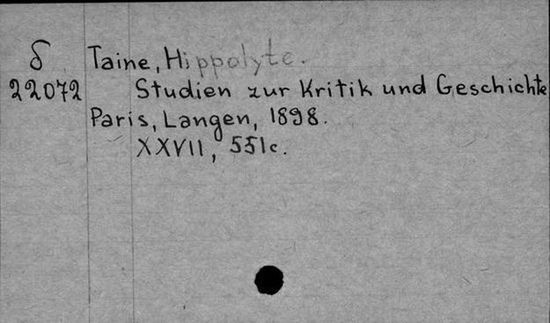 δ Taine, Hippolyte.
22072 Studien zur Kritik und Geschichte
Paris, Langen, 1898.
XXVII, 551c.